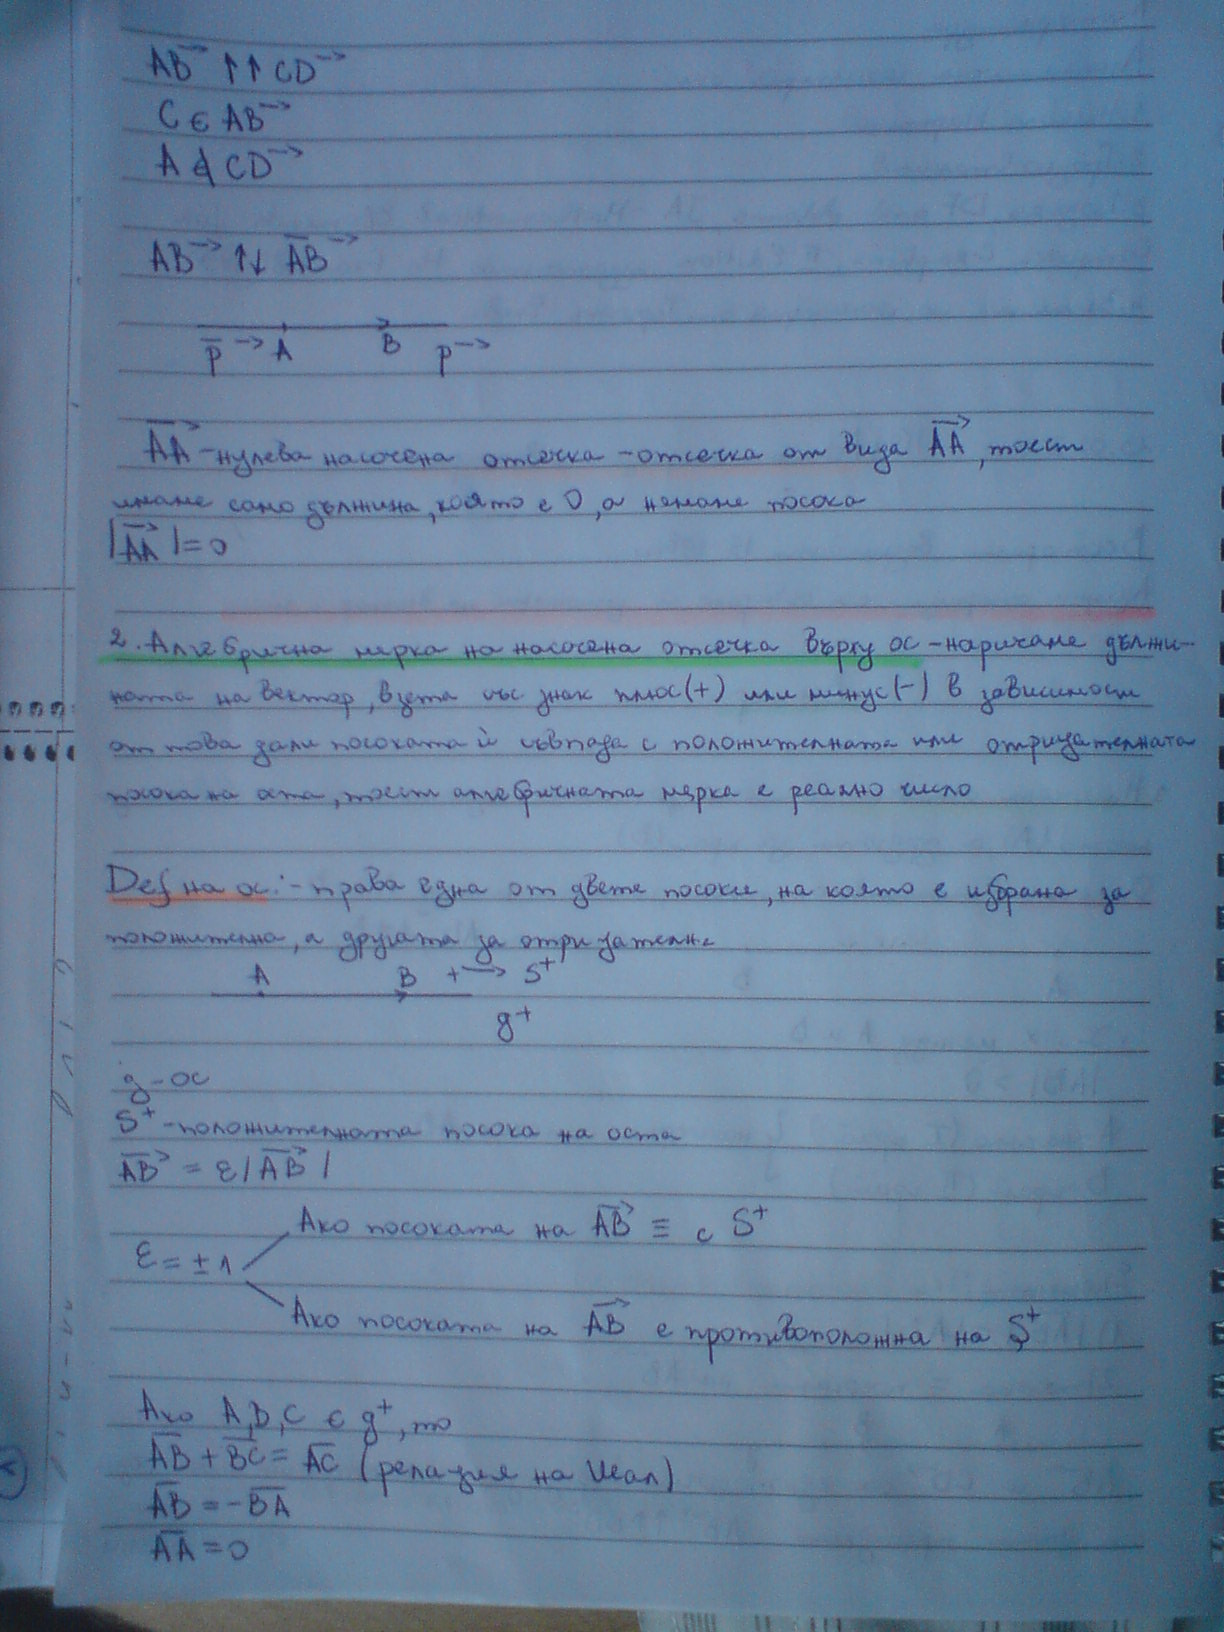 AB→ ↑↑ CD→
C ∈ AB→
A ∉ CD→
AB→ ↑↓ A̅B→
p̅→ A B p→
A͞A→ - нулева насочена отсечка - отсечка от вида A͞A→, тоест
имаме само дължина, която е 0, а нямаме посока
|A͞A→| = 0
2. Алгебрична мярка на насочена отсечка върху ос - наричаме дължи-
ната на вектор, взета със знак плюс(+) или минус(-) в зависимост
от това дали посоката ѝ съвпада с положителната или отрицателната
посока на оста, тоест алгебричната мярка е реално число
Def на ос: - права една от двете посоки, на която е избрана за
положителна, а другата за отрицателна
A B +→ S⁺
g⁺
g - ос
S⁺ - положителната посока на оста
A͞B→ = ε|A͞B→|
Ако посоката на A͞B→ ≡ с S⁺
ε = ±1
Ако посоката на A͞B→ е противоположна на S⁺
Ако A, B, C ∈ g⁺, то
A͞B + B͞C = A͞C (релация на Шал)
A͞B = -B͞A
A͞A = 0